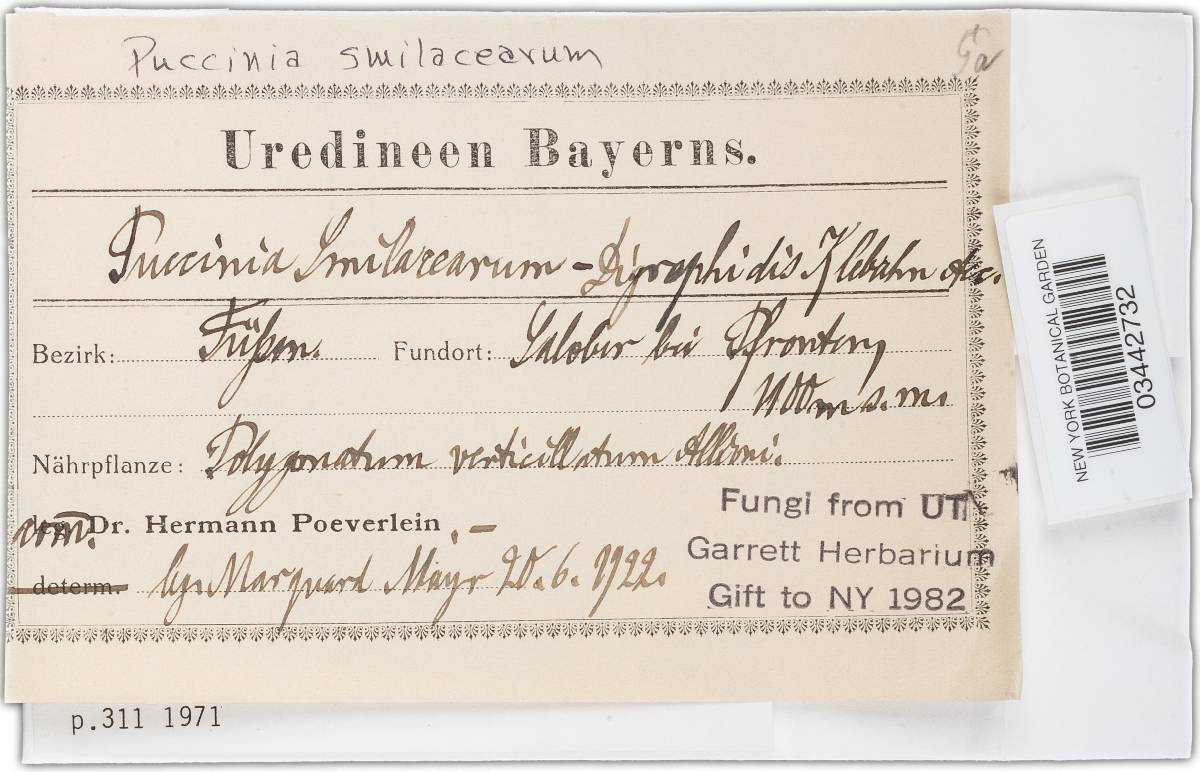 Puccinia smilacearum
Uredineen Bayerns.
Puccinia Smilacearum-Digraphidis Klebahn
Bezirk: Füßen. Fundort: Salober bei Pfronten,
1100 m s. m.
Nährpflanze: Polygonatum verticillatum Allioni.
com. leg. Dr. Hermann Poeverlein.—
determ. lg. Marquard Mayr 20.6.1922.
Fungi from UT
Garrett Herbarium
Gift to NY 1982
NEW YORK BOTANICAL GARDEN
03442732
p.311 1971